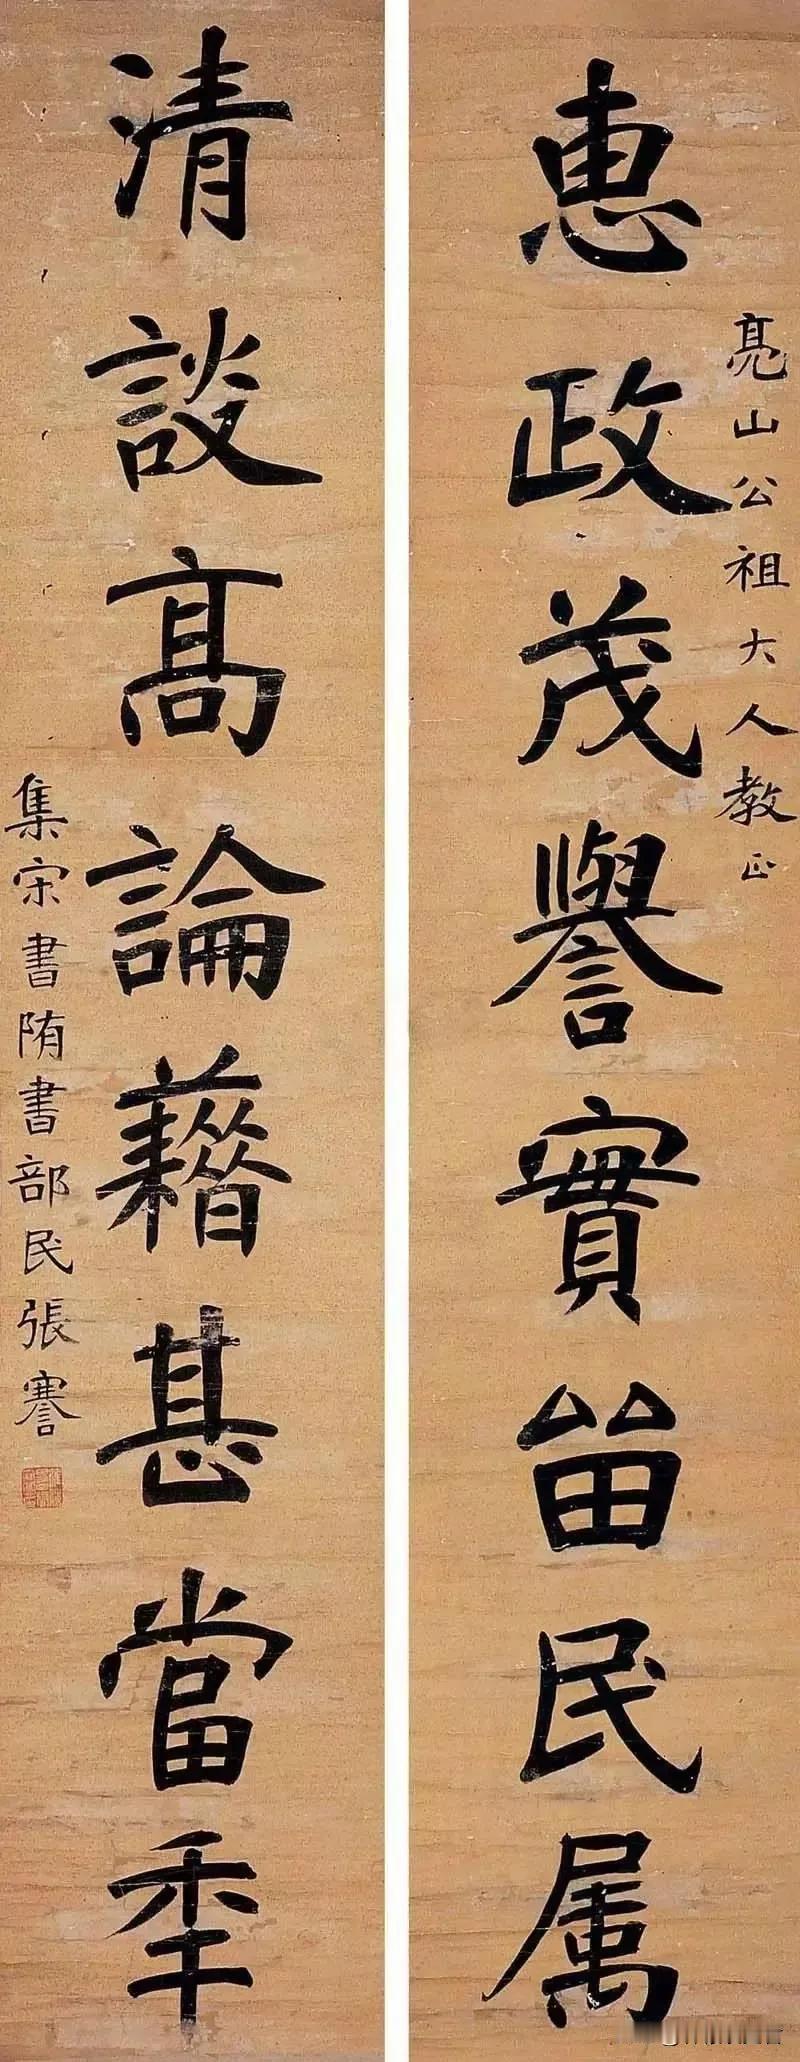 亮山公祖大人教正
惠政茂譽實畱民属
清談高論藉甚當秊
集宋書隋書部民張謇